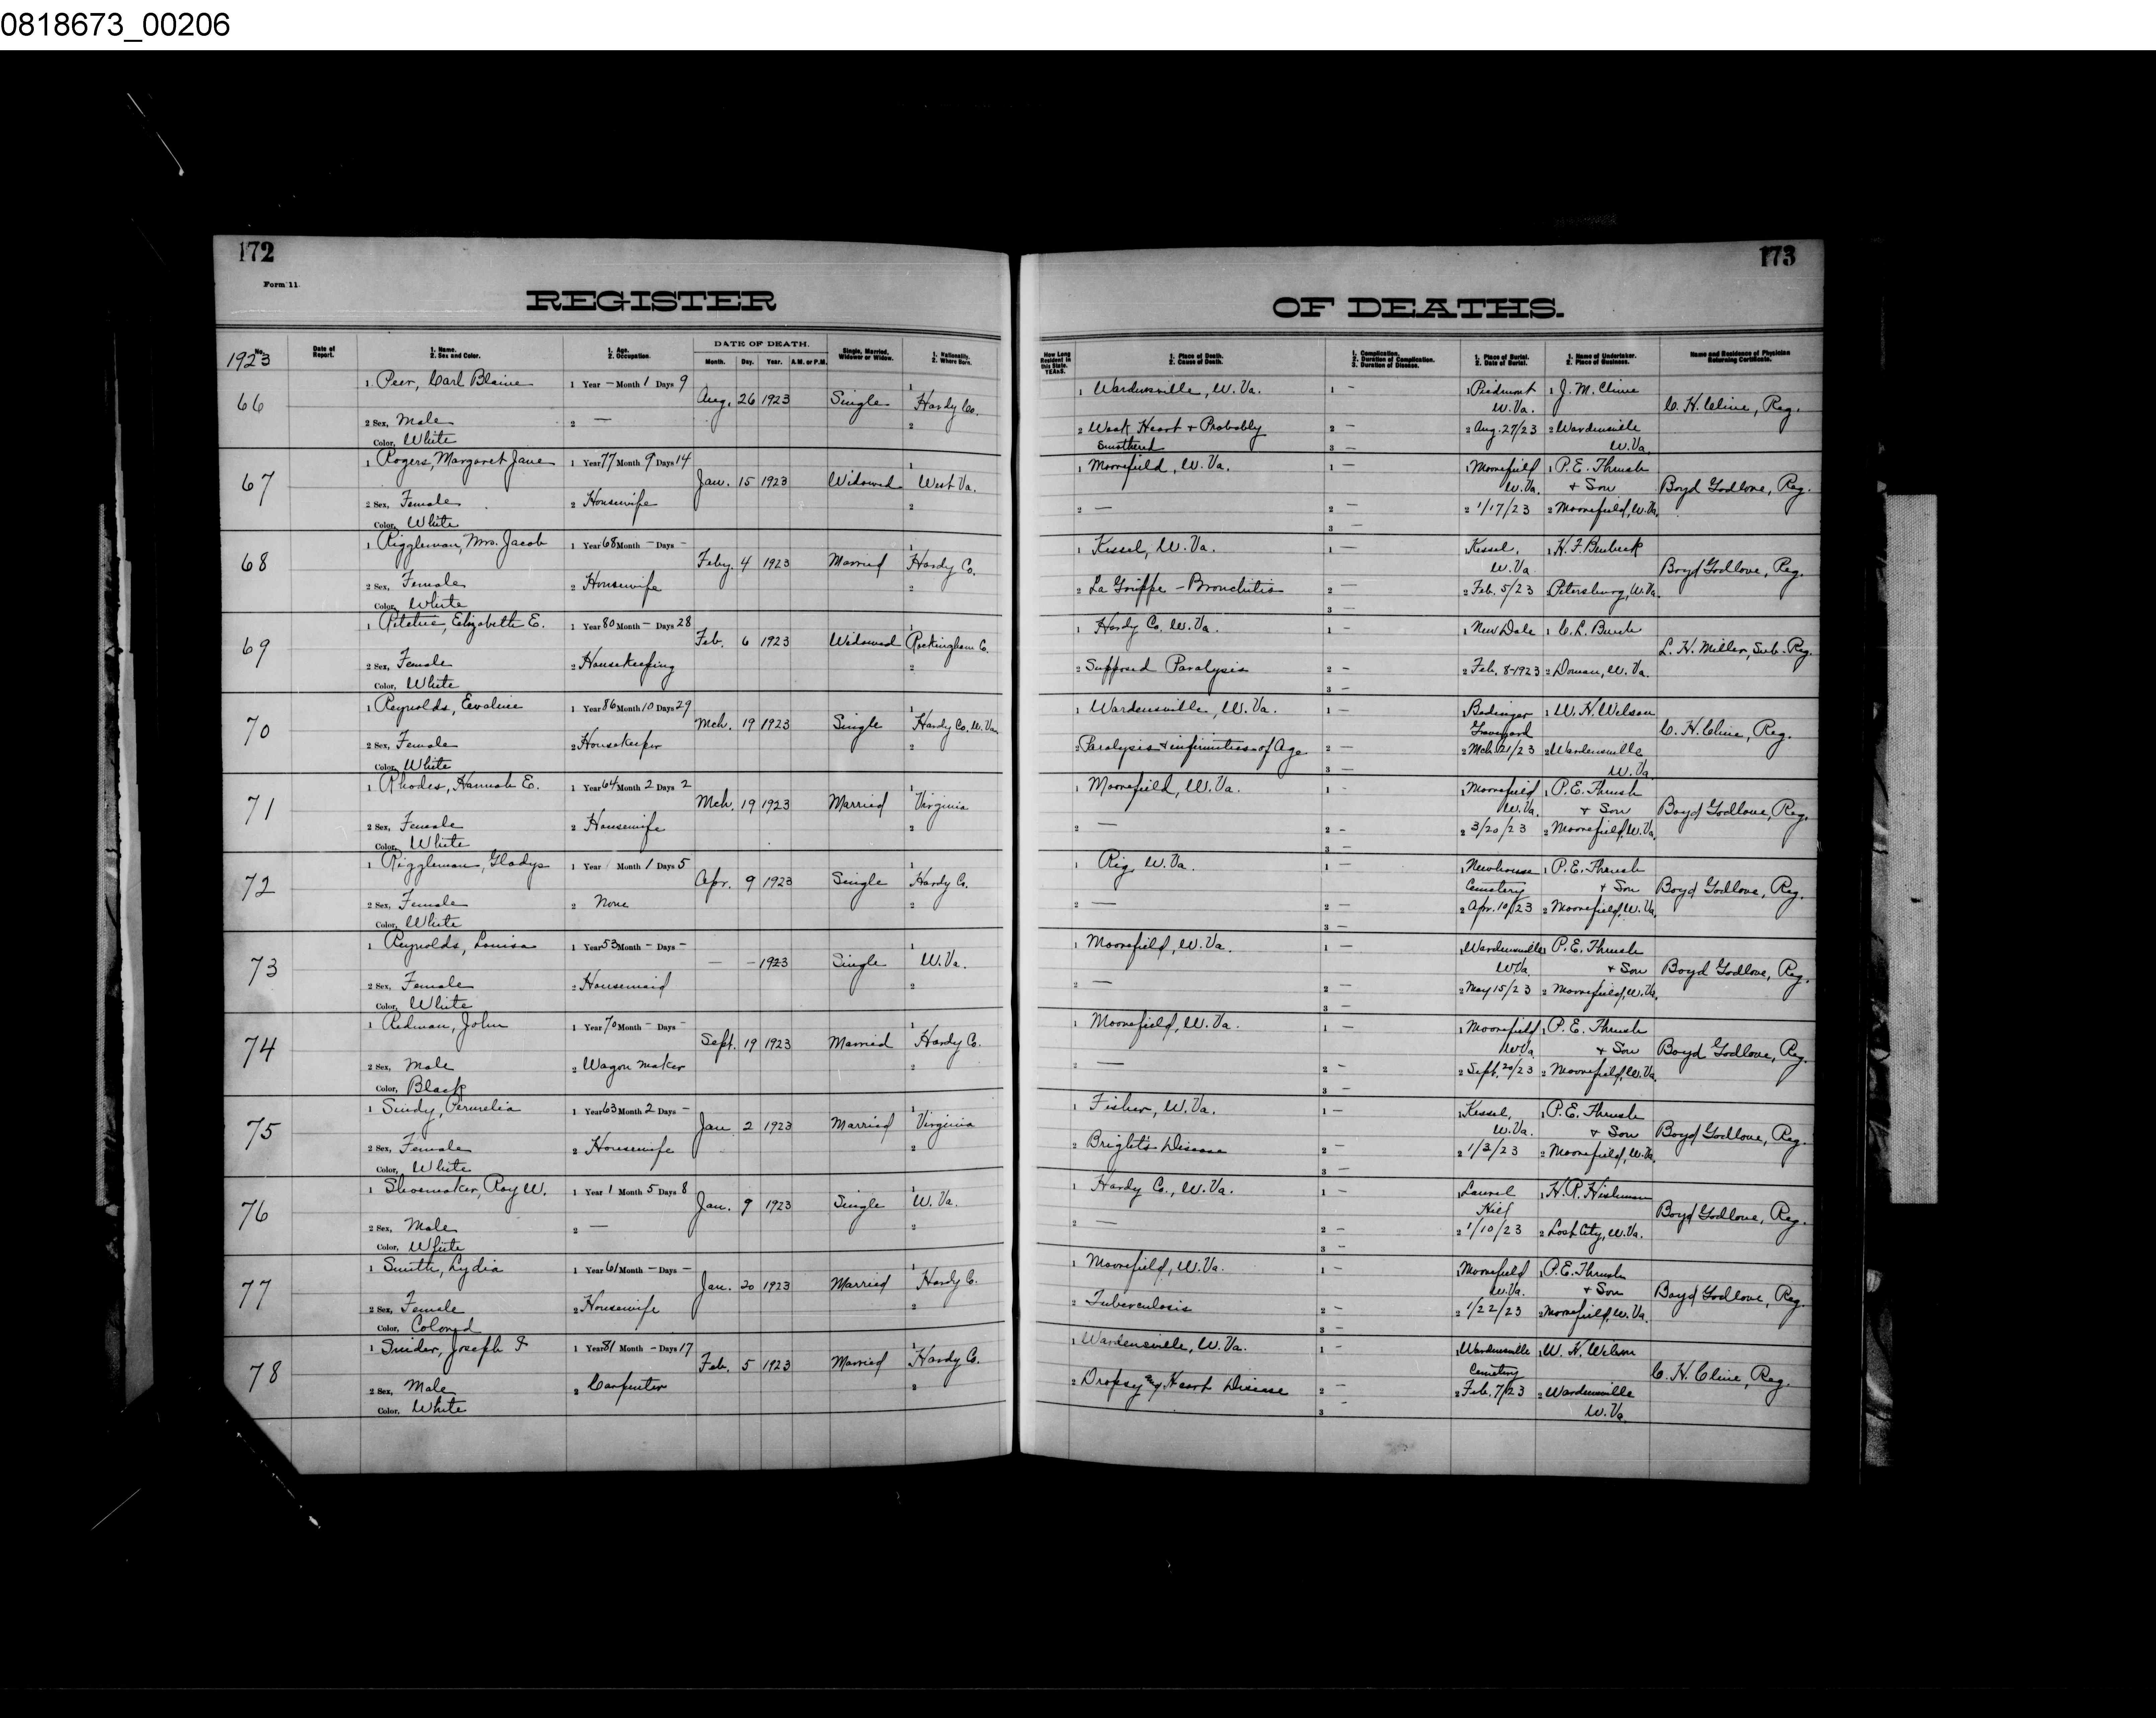 0818673_00206
172
Form 11.
REGISTER
173
OF DEATHS.
1923
No.
Date of Report.
1. Name.
2. Sex and Color.
1. Age.
2. Occupation.
DATE OF DEATH.
Month. Day. Year. A.M. or P.M.
Single, Married, Widower or Widow.
1. Nationality.
2. Where Born.
How Long Resident in this State. YEARS.
1. Place of Death.
2. Cause of Death.
1. Complication.
2. Duration of Complication.
3. Duration of Disease.
1. Place of Burial.
2. Date of Burial.
1. Name of Undertaker.
2. Place of Business.
Name and Residence of Physician Returning Certificate.
66 1 Peer, Carl Blaine 1 Year — Month 1 Days 9 Aug. 26 1923 Single 1 Hardy Co. 1 Wardensville, W. Va. 1 — 1 Piedmont W. Va. 1 J. M. Cline C. H. Cline, Reg.
2 Sex, Male 2 — 2 2 Weak Heart + Probably Smothered 2 — 2 Aug. 27/23 2 Wardensville W. Va.
Color, White 3 —
67 1 Rogers, Margaret Jane 1 Year 77 Month 9 Days 14 Jan. 15 1923 Widowed 1 West Va. 1 Moorefield, W. Va. 1 — 1 Moorefield W. Va. 1 P. E. Thrush + Son Boyd Godlove, Reg.
2 Sex, Female 2 Housewife 2 2 — 2 — 2 1/17/23 2 Moorefield, W. Va.
Color, White 3 —
68 1 Riggleman, Mrs. Jacob 1 Year 68 Month — Days — Feby. 4 1923 Married 1 Hardy Co. 1 Kessel, W. Va. 1 — 1 Kessel, W. Va. 1 H. F. Boyd Godlove, Reg.
2 Sex, Female 2 Housewife 2 2 La Grippe — Bronchitis 2 — 2 Feb. 5/23 2 Petersburg, W. Va.
Color, White 3 —
69 1 Ritchie, Elizabeth E. 1 Year 80 Month — Days 28 Feb. 6 1923 Widowed 1 Rockingham C. 1 Hardy Co. W. Va. 1 — 1 New Dale 1 C. L. L. H. Miller, Sub. Reg.
2 Sex, Female 2 Housekeeping 2 2 Supposed Paralysis 2 — 2 Feb. 8-1923 2 Doman, W. Va.
Color, White 3 —
70 1 Reynolds, Evaline 1 Year 86 Month 10 Days 29 Mch. 19 1923 Single 1 Hardy Co. W. Va. 1 Wardensville, W. Va. 1 — 1 Bedinger Graveyard 1 W. H. Wilson C. H. Cline, Reg.
2 Sex, Female 2 Housekeeper 2 2 Paralysis + infirmities of Age 2 — 2 Mch. 21/23 2 Wardensville W. Va.
Color, White 3 —
71 1 Rhodes, Hannah E. 1 Year 64 Month 2 Days 2 Mch. 19 1923 Married 1 Virginia 1 Moorefield, W. Va. 1 - 1 Moorefield W. Va. 1 P. E. Thrush + Son Boyd Godlove, Reg.
2 Sex, Female 2 Housewife 2 2 — 2 — 2 3/20/23 2 Moorefield, W. Va.
Color, White 3 —
72 1 Riggleman, Gladys 1 Year Month 1 Days 5 Apr. 9 1923 Single 1 Hardy Co. 1 Rig, W. Va. 1 — 1 Newhouse Cemetery 1 P. E. Thrush + Son Boyd Godlove, Reg.
2 Sex, Female 2 None 2 2 — 2 — 2 Apr. 10/23 2 Moorefield, W. Va.
Color, White 3 —
73 1 Reynolds, Louisa 1 Year 53 Month — Days — — — 1923 Single 1 W. Va. 1 Moorefield, W. Va. 1 — 1 Wardensville W. Va. 1 P. E. Thrush + Son Boyd Godlove, Reg.
2 Sex, Female 2 Housemaid 2 2 — 2 — 2 May 15/23 2 Moorefield, W. Va.
Color, White 3 —
74 1 Redman, John 1 Year 70 Month — Days — Sept. 19 1923 Married 1 Hardy Co. 1 Moorefield, W. Va. 1 — 1 Moorefield W. Va. 1 P. E. Thrush + Son Boyd Godlove, Reg.
2 Sex, Male 2 Wagon maker 2 2 — 2 — 2 Sept. 20/23 2 Moorefield, W. Va.
Color, Black 3 —
75 1 Sindy, Permelia 1 Year 63 Month 2 Days — Jan 2 1923 Married 1 Virginia 1 Fisher, W. Va. 1 — 1 Kessel, W. Va. 1 P. E. Thrush + Son Boyd Godlove, Reg.
2 Sex, Female 2 Housewife 2 2 Bright's Disease 2 — 2 1/3/23 2 Moorefield, W. Va.
Color, White 3 —
76 1 Shoemaker, Roy W. 1 Year 1 Month 5 Days 8 Jan. 9 1923 Single 1 W. Va. 1 Hardy Co., W. Va. 1 — 1 Laurel Hill 1 H. R. Hishman Boyd Godlove, Reg.
2 Sex, Male 2 — 2 2 — 2 — 2 1/10/23 2 Lost City, W. Va.
Color, White 3 —
77 1 Smith, Lydia 1 Year 61 Month — Days — Jan. 20 1923 Married 1 Hardy C. 1 Moorefield, W. Va. 1 — 1 Moorefield W. Va. 1 P. E. Thrush + Son Boyd Godlove, Reg.
2 Sex, Female 2 Housewife 2 2 Tuberculosis 2 — 2 1/22/23 2 Moorefield, W. Va.
Color, Colored 3 —
78 1 Snider, Joseph F 1 Year 81 Month — Days 17 Feb. 5 1923 Married 1 Hardy Co. 1 Wardensville, W. Va. 1 — 1 Wardensville Cemetery 1 W. H. Wilson C. H. Cline, Reg.
2 Sex, Male 2 Carpenter 2 2 Dropsy and Heart Disease 2 — 2 Feb. 7/23 2 Wardensville W. Va.
Color, White 3 -